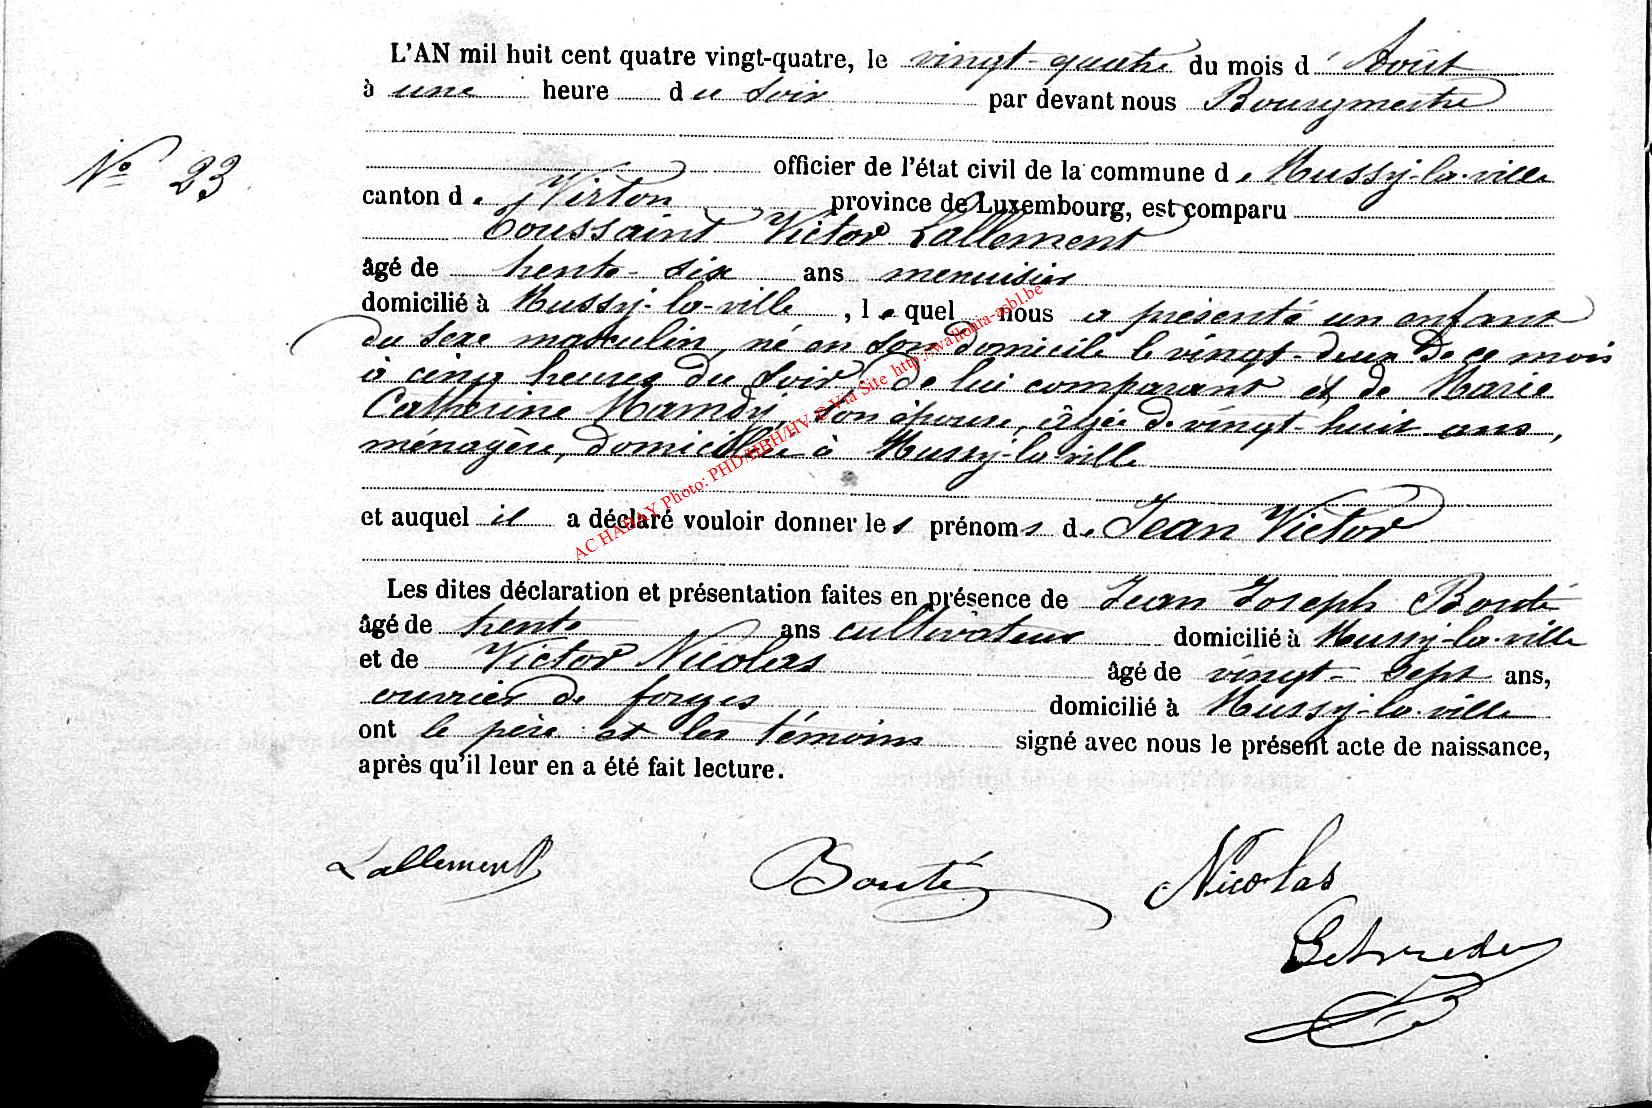 L'AN mil huit cent quatre vingt-quatre, le vingt-quatre du mois d'Août
à une heure du soir par devant nous Bourgmestre
N° 23
officier de l'état civil de la commune de Mussy-la-ville
canton de Virton province de Luxembourg, est comparu
Toussaint Victor Lallement
âgé de trente-six ans menuisier
domicilié à Mussy-la-ville, lequel nous a présenté un enfant
du sexe masculin, né en son domicile le vingt-deux de ce mois
à cinq heures du soir, de lui comparant et de Marie
Catherine Mamdy, son épouse, âgée de vingt-huit ans,
ménagère, domiciliée à Mussy-la-ville
et auquel il a déclaré vouloir donner les prénoms de Jean Victor
Les dites déclaration et présentation faites en présence de Jean Joseph Bouté
âgé de trente ans cultivateur domicilié à Mussy-la-ville
et de Victor Nicolas âgé de vingt-sept ans,
ouvrier de forges domicilié à Mussy-la-ville
ont le père et les témoins signé avec nous le présent acte de naissance,
après qu'il leur en a été fait lecture.
Lallement Bouté Nicolas
AC HABAY Photo: PHD/HBH/HV © Via Site http://wallonia-asbl.be